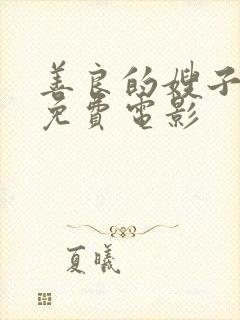 善良的嫂子
免費電影
夏曦